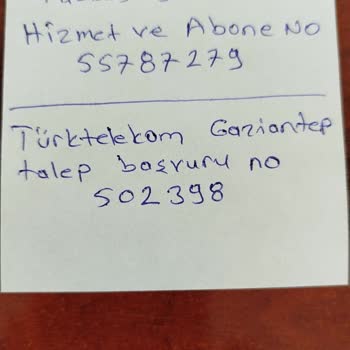 Hizmet ve Abone No
55787279
Türktelekom Gaziantep
talep başvuru no
502398